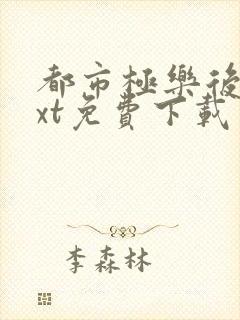 都市極樂後
xt免費下載
李森林